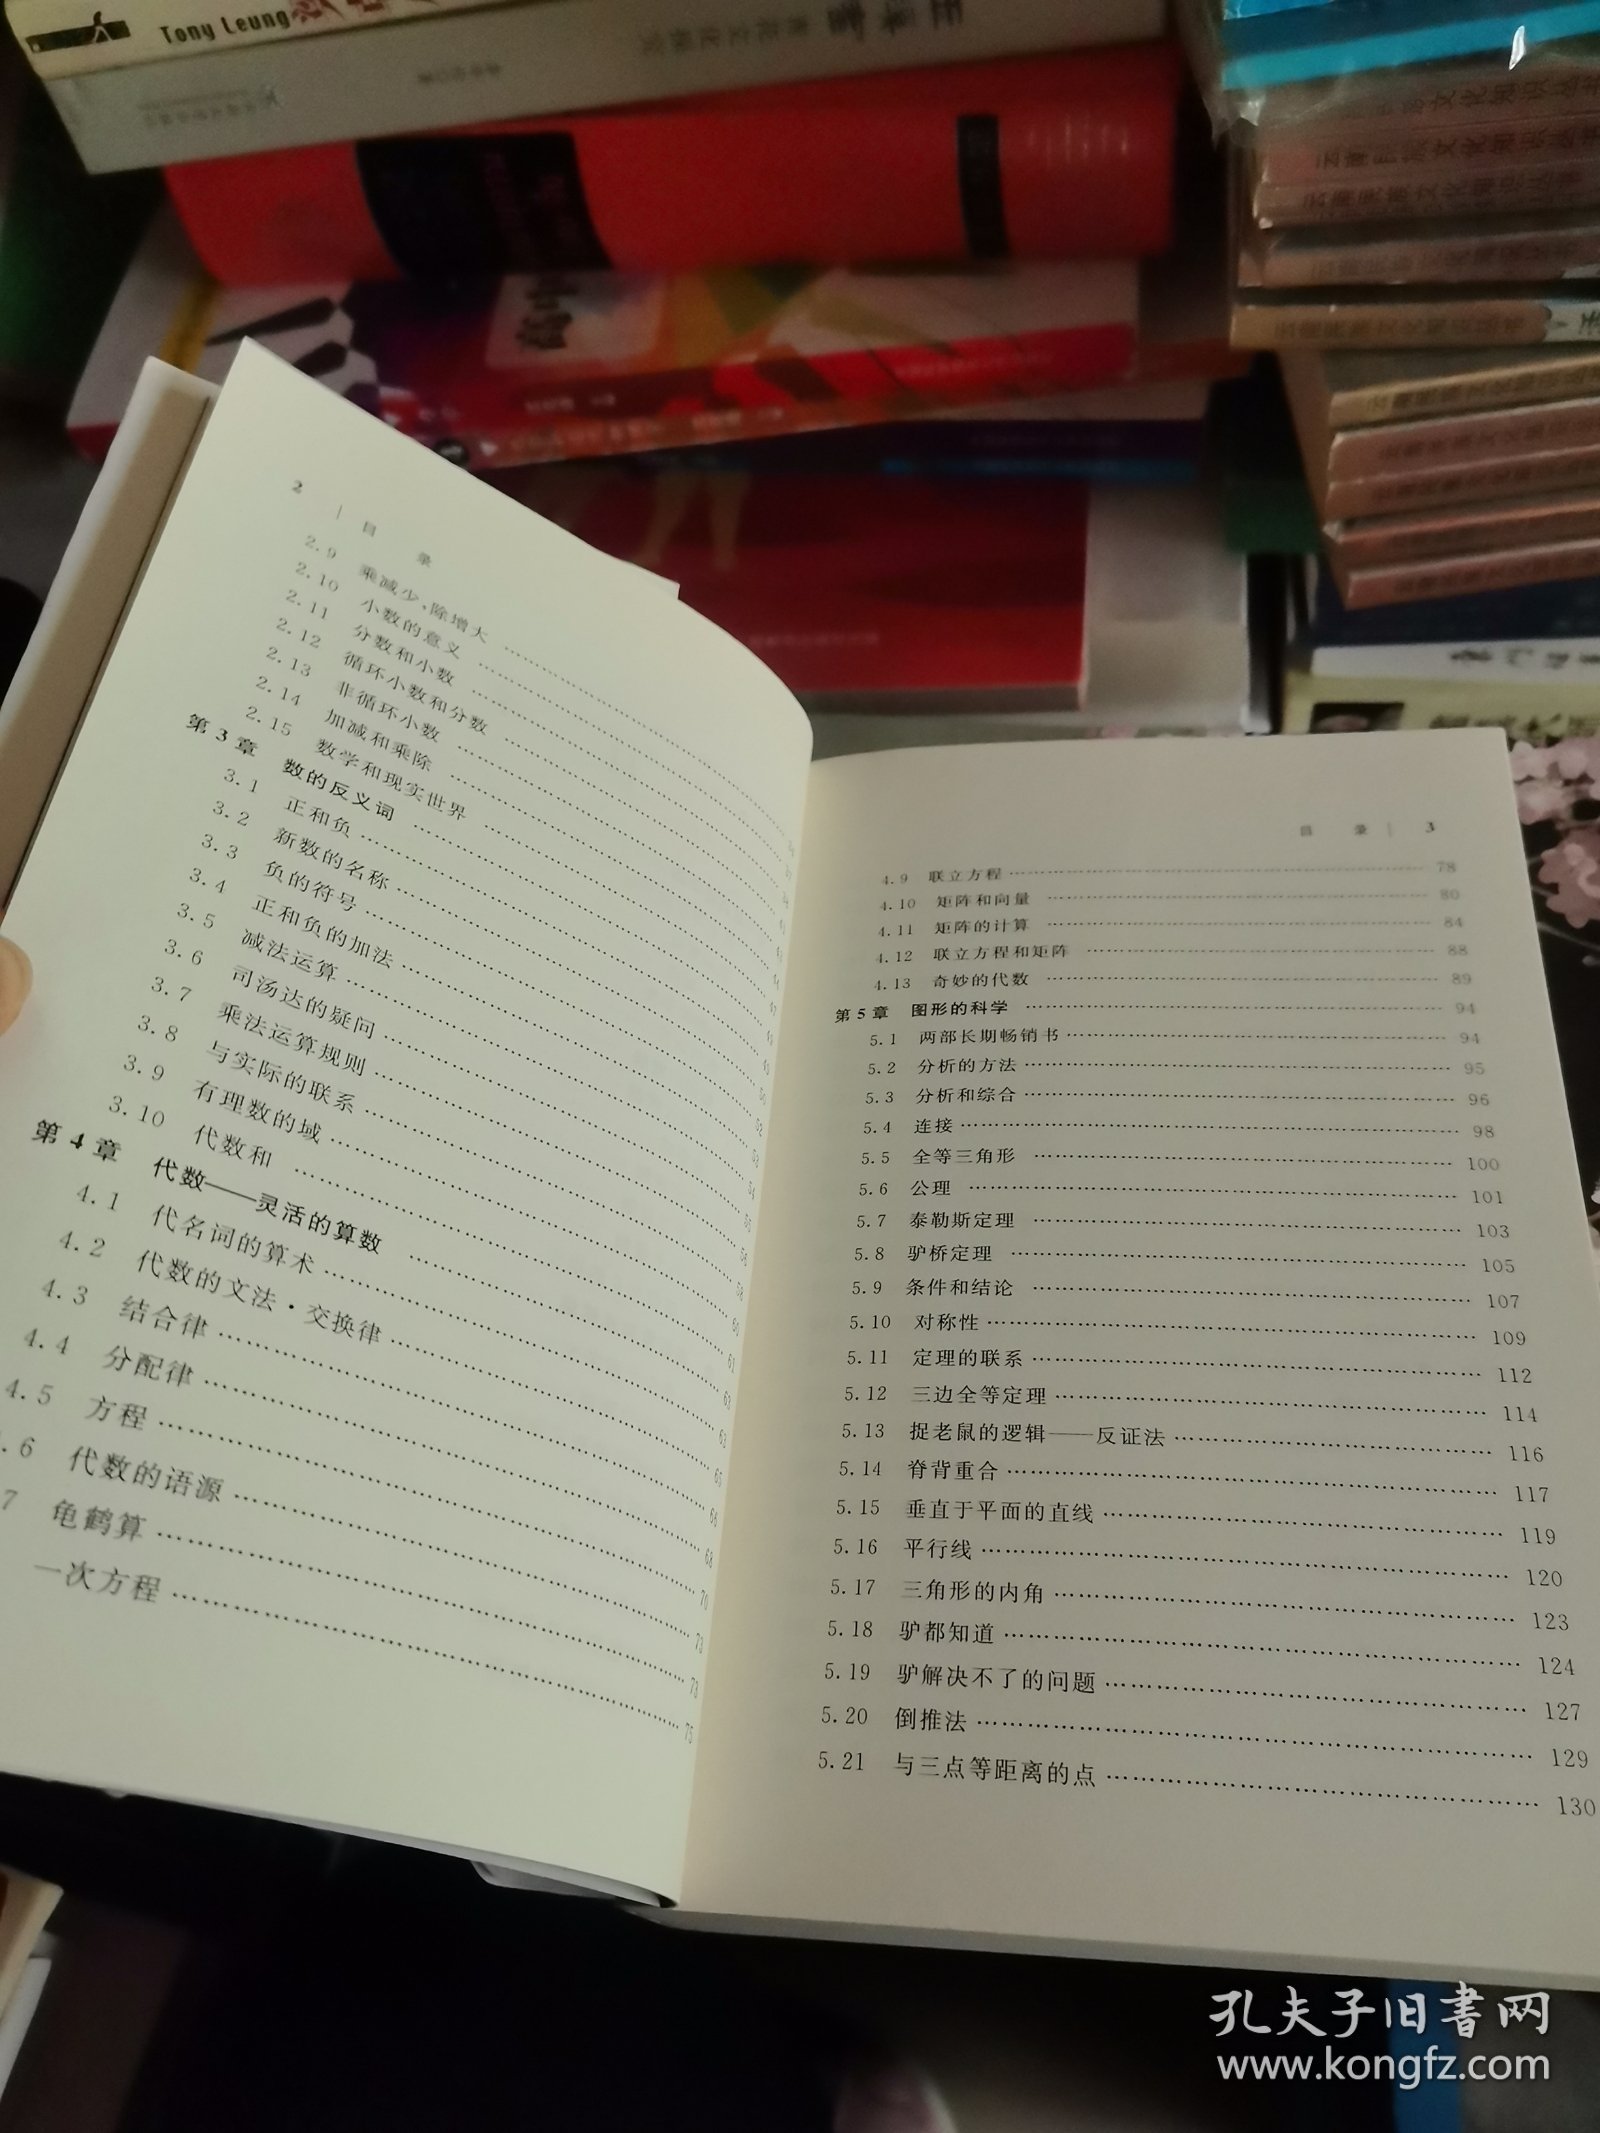 Tony Leung
2 | 目 录
2.9 乘减少,除增大
2.10 小数的意义
2.11 分数和小数
2.12 循环小数和分数
2.13 非循环小数
2.14 加减和乘除
2.15 数学和现实世界
第3章 数的反义词
3.1 正和负
3.2 新数的名称
3.3 负的符号
3.4 正和负的加法
3.5 减法运算
3.6 司汤达的疑问
3.7 乘法运算规则
3.8 与实际的联系
3.9 有理数的域
3.10 代数和
第4章 代数——灵活的算数
4.1 代名词的算术
4.2 代数的文法·交换律
4.3 结合律
4.4 分配律
4.5 方程
.6 代数的语源
7 龟鹤算
一次方程 75
目 录 | 3
4.9 联立方程 78
4.10 矩阵和向量 80
4.11 矩阵的计算 84
4.12 联立方程和矩阵 88
4.13 奇妙的代数 89
第5章 图形的科学 94
5.1 两部长期畅销书 94
5.2 分析的方法 95
5.3 分析和综合 96
5.4 连接 98
5.5 全等三角形 100
5.6 公理 101
5.7 泰勒斯定理 103
5.8 驴桥定理 105
5.9 条件和结论 107
5.10 对称性 109
5.11 定理的联系 112
5.12 三边全等定理 114
5.13 捉老鼠的逻辑——反证法 116
5.14 脊背重合 117
5.15 垂直于平面的直线 119
5.16 平行线 120
5.17 三角形的内角 123
5.18 驴都知道 124
5.19 驴解决不了的问题 127
5.20 倒推法 129
5.21 与三点等距离的点 130
孔夫子旧书网
www.kongfz.com